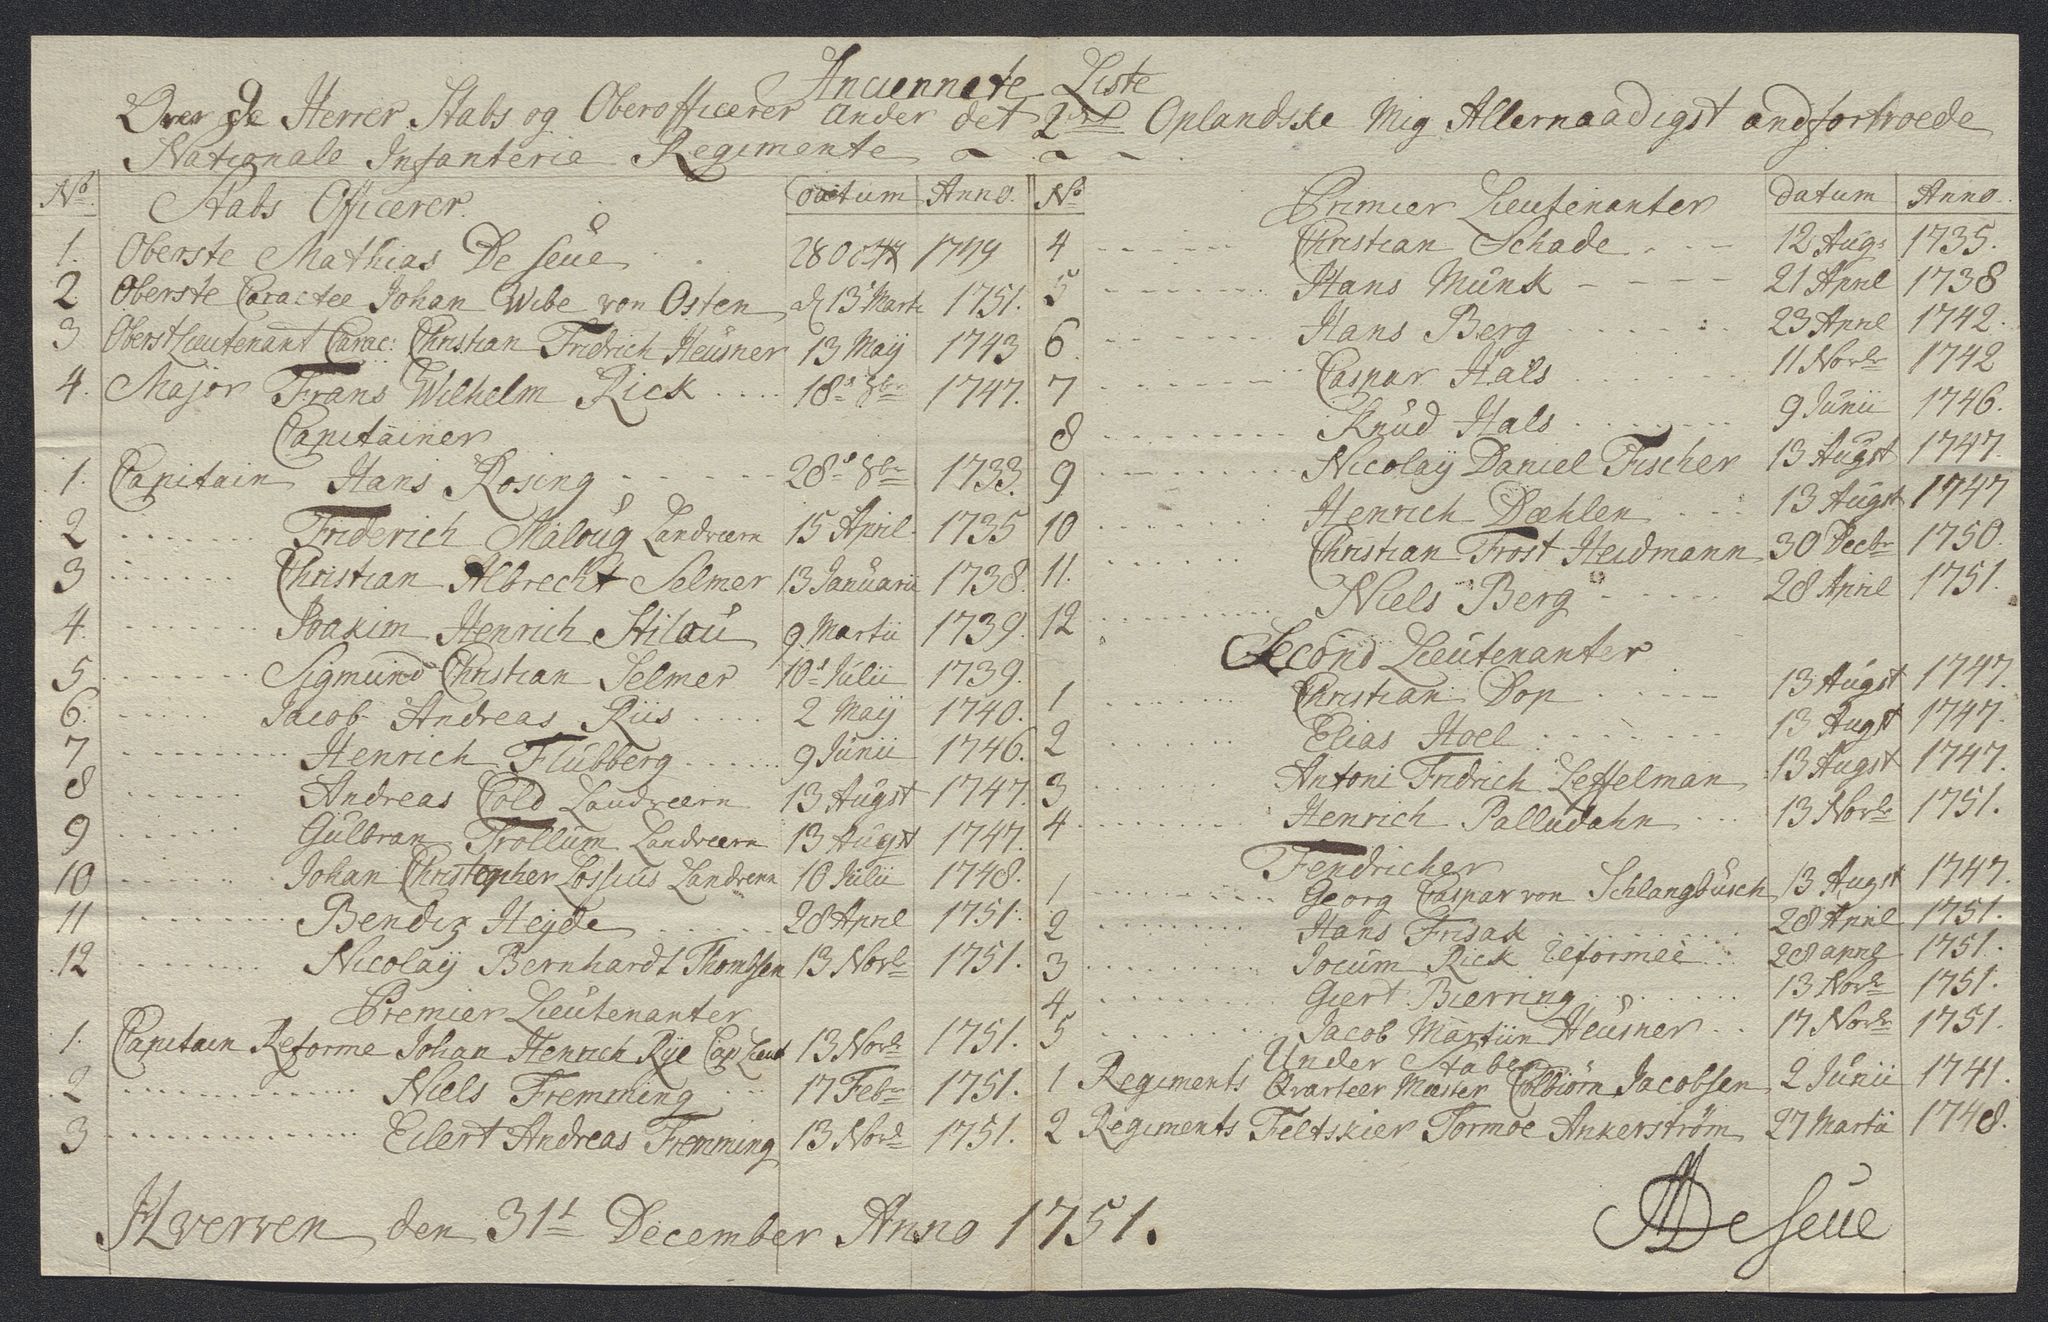 Anciennete Liste
Over de Herrer Stabs og Oberofficerer under det 2det Oplandske Mig Allernaadigst andfortroede
Nationale Infanterie Regimente
No. Stabs Officerer. datum Anno.
1. Oberste Mathias De Seüe 28 Octr 1749
2 Oberste Caractee Johan Wibe von Osten d 13 Marti 1751.
3 OberstLieutenant Carac: Christian Fridrich Heüsner 13 Maÿ 1743
4. Major Frans Wilhelm Rick 18s 8br 1747.
Capitainer
1. Capitain Hans Rosing 28s 8br 1733.
2 Friderich Maloüg Landvern 15 April 1735
3 Christian Albrecht Selmer 13 Januarii 1738.
4. Joakim Henrich Stilau 9 Martii 1739.
5 Sigmund Christian Selmer 10s Julii 1739.
6. Jacob Andreas Riis 2 Maÿ 1740.
7 Henrich Flubberg 9 Junii 1746.
8 Andreas Cold Landvern 13 Augst 1747.
9 Gulbran Trollum Landvern 13 Augst 1747.
10 Johan Christopher Lossius Landvern 10 Julii 1748.
11 Bendix Heÿde 28 April 1751.
12 Nicolaÿ Bernhardt Thomssen 13 Novbr 1751.
Premier Lieutenanter
1. Capitain Reforme Johan Henrich Rÿe Cap Lieut 13 Novbr 1751.
2 Niels Fremming 17 Febr 1751.
3 Eilert Andreas Fremming 13 Novbr 1751.
No Premier Lieutenanter datum Anno.
4 Christian Schade 12 Augs 1735.
5 Hans Münk 21 April 1738
6 Hans Berg 23 April 1742.
7 Caspar Hals 11 Novbr 1742
8 Knüd Hals 9 Junii 1746.
9 Nicolaÿ Daniel Fischer 13 Augst 1747.
10 Henrich Dæhlen 13 Augst 1747
11. Christian Frost Heidmann 30 Decbr 1750.
12 Niels Berg 28 April 1751.
Second Lieutenanter
1 Christian Dop 13 Augst 1747.
2 Elias Hoel 13 Augst 1747.
3 Antoni Fridrich Leffelman 13 Augst 1747.
4 Henrich Palludahn 13 Novbr 1751.
Fendricher
1 Georg Caspar von Schlangbüsch 13 Augst 1747.
2 Hans Frisak 28 April 1751.
3 Jocum Rick reformee 28 april 1751.
4 Giert Bierring 13 Novbr 1751.
5 Jacob Martiin Heüsner 17 Novbr 1751.
Under Stabe
1 Regiments Qvarteer Mæster Colbiörn Jacobsen 2 Junii 1741.
2 Regiments Feltskier Tormoe Ankerström 27 Martii 1748.
Hverven den 31t December Anno 1751.
MDeSeüe